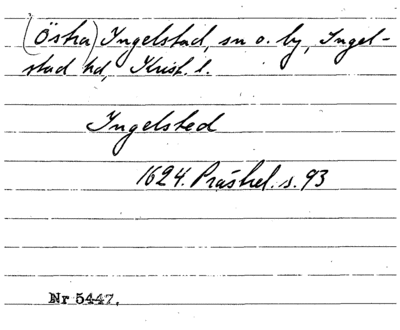 (Östra) Ingelstad, sn o. by, Ingel-
stad hd, Krist. l.
Ingelsted
1624. Prästrel. s. 93
Nr 5447.